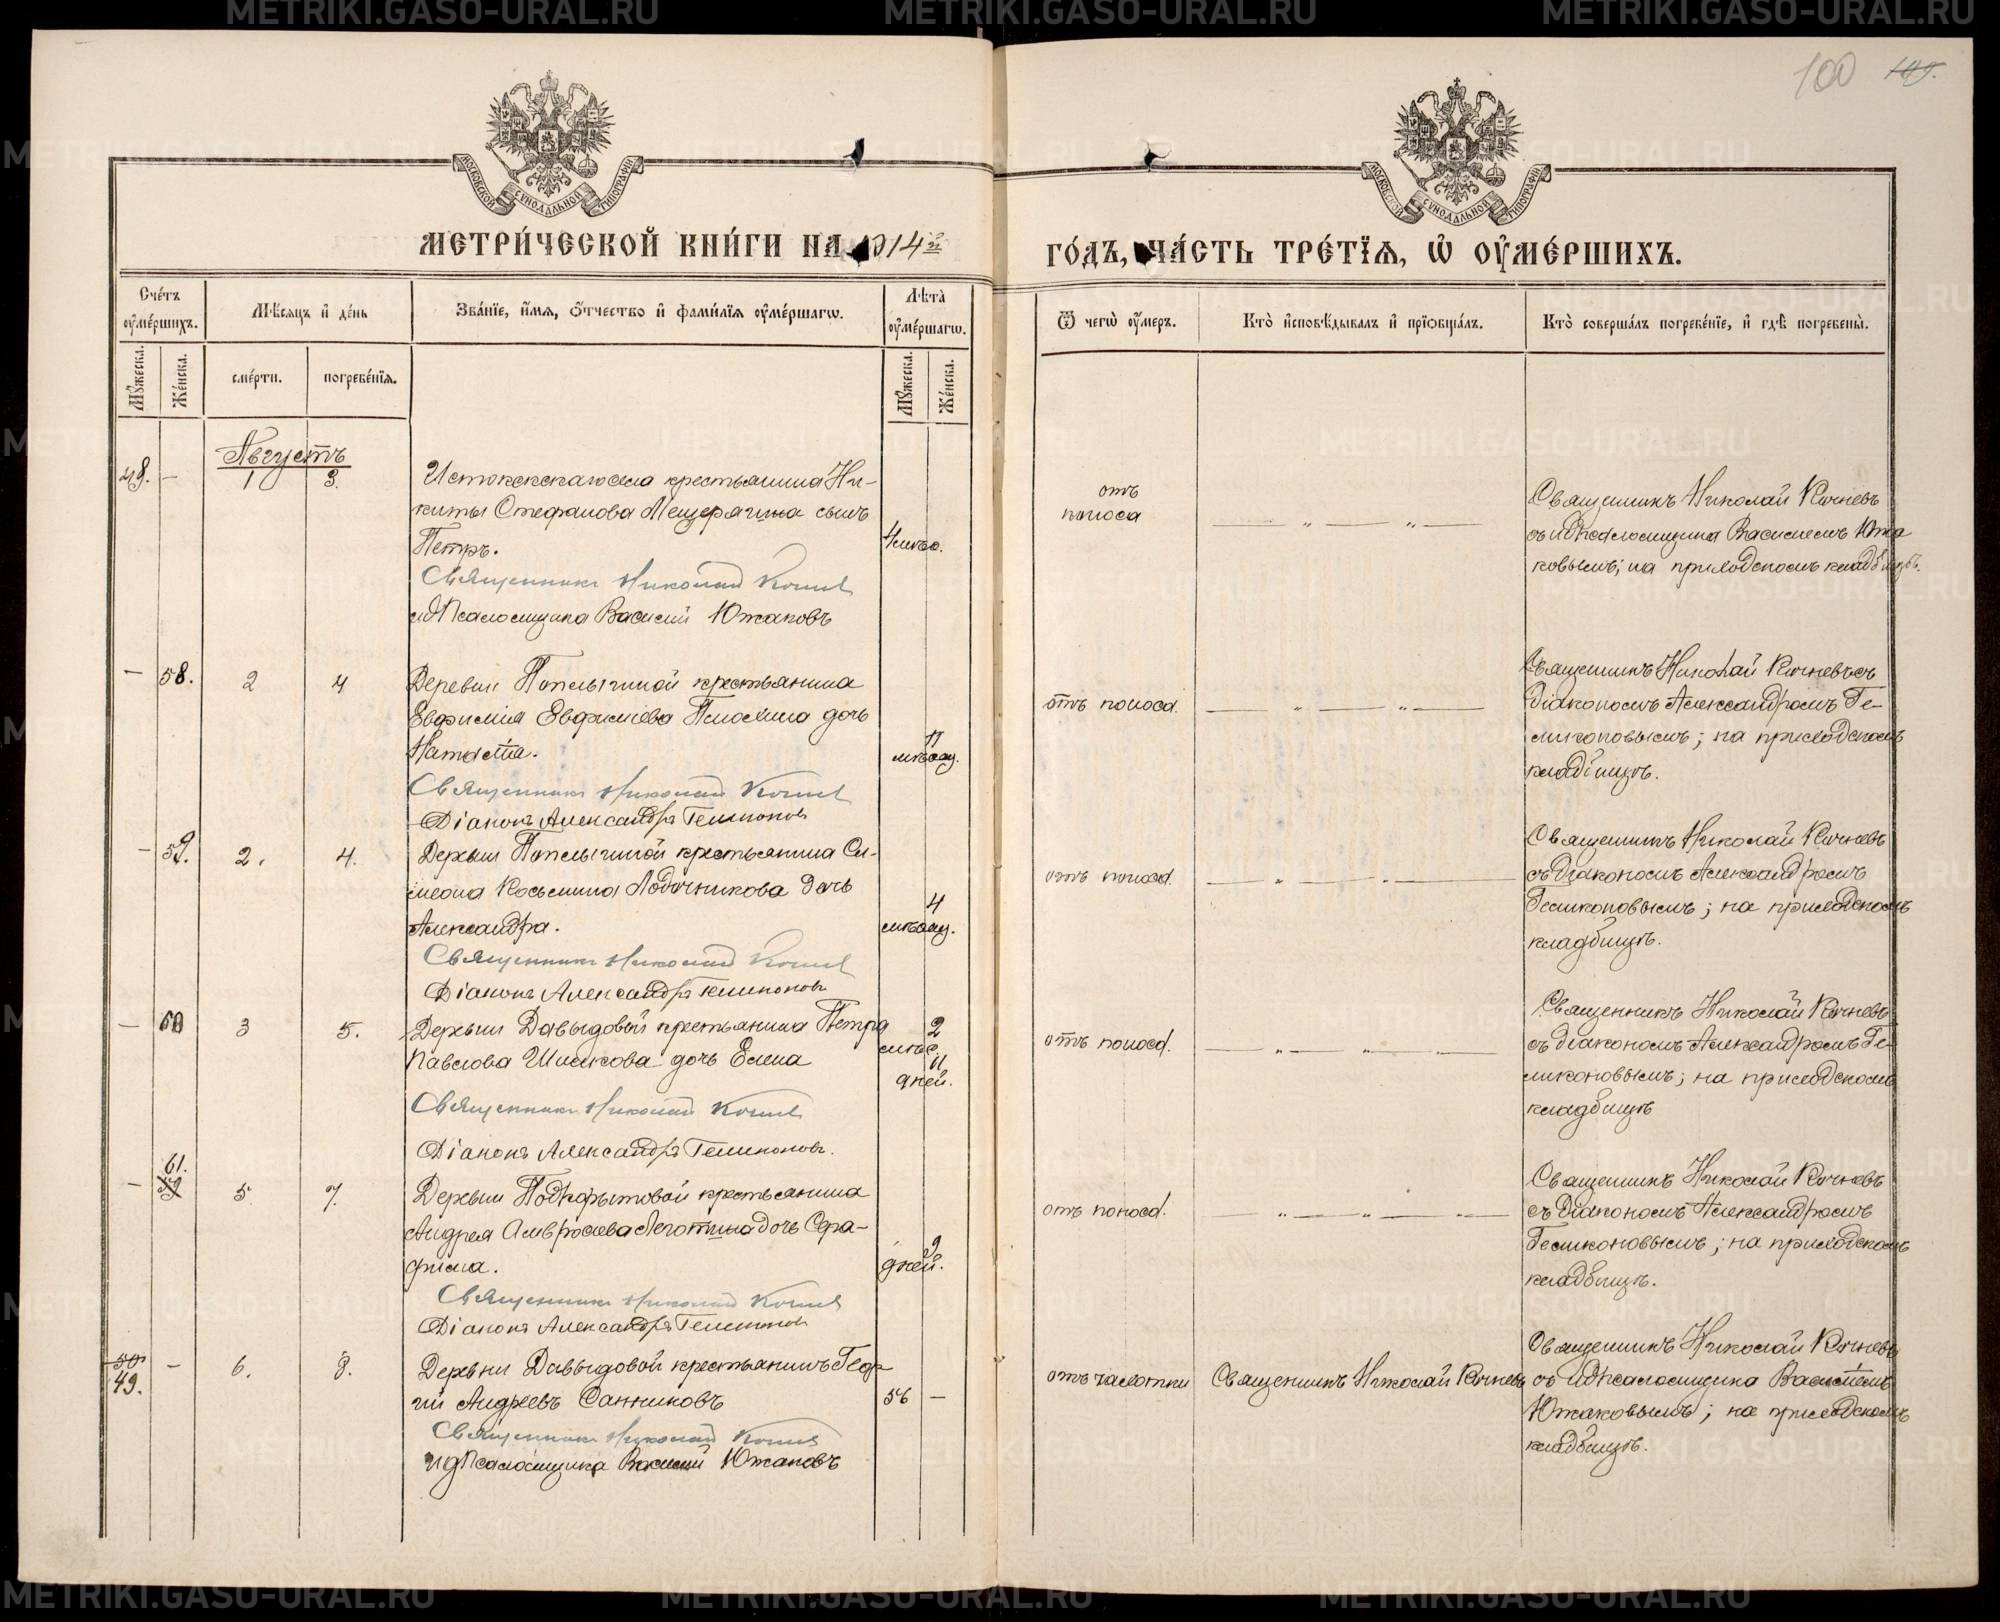 METRIKI.GASO-URAL.RU
100 109.
МОСКОВСКОЙ СѴНОДАЛЬНОЙ ТИПОГРАФІИ
МОСКОВСКОЙ СѴНОДАЛЬНОЙ ТИПОГРАФІИ
МЕТРИ́ЧЕСКОЙ КНИ́ГИ НА 1914й
ГО́ДЪ, ЧА́СТЬ ТРЕ́ТЇѦ, Ѡ҆ ОУ҆МЕ́РШИХЪ.
Сче́тъ оу҆ме́ршихъ.
Мꙋ́жеска.
Же́нска.
Мѣ́сѧцъ и҆ де́нь
сме́рти.
погребе́нїѧ.
Зва́нїе, и҆́мѧ, ѻ҆́тчество и҆ фами́лїѧ оу҆ме́ршагѡ.
Лѣ̀та оу҆ме́ршагѡ.
Мꙋ́жеска.
Же́нска.
Ѿ чегѡ̀ оу҆́меръ.
Кто̀ и҆сповѣ́дывалъ и҆ прїѡбща́лъ.
Кто̀ соверша́лъ погребе́нїе, и҆ гдѣ̀ погребены̀.
Августъ
48. — 1 3.
Истокскаго села крестьянина Ни-
киты Стефанова Мещерягина сынъ
Петръ.
Священникъ Николай Кочнев
ид Псаломщика Василий Южаковъ
отъ
поноса
Священникъ Николай Кочневъ
съ ид псаломщика Василіемъ Южа
ковымъ; на приходскомъ кладбищѣ.
— 58. 2 4
Деревни крестьянина
Евфимія Евфиміева дочь
Наталія.
11
мѣсяц.
Священникъ Николай Кочнев
Діаконъ Александръ Геликонов
отъ поноса.
Священникъ Николай Кочневъ съ
діакономъ Александромъ Ге-
ликоновымъ; на приходскомъ
кладбищѣ.
— 59. 2. 4.
Деревни крестьянина Си-
меона Косьмина Лодочникова дочь
Александра.
4
мѣсяц.
Священникъ Николай Кочнев
Діаконъ Александръ Геликоновъ
отъ поноса.
Священникъ Николай Кочневъ
съ діакономъ Александромъ
Геликоновымъ; на приходскомъ
кладбищѣ.
— 60 3 5.
Деревни Давыдовой крестьянина Петра
Павлова Шишкова дочь Елена
2
мѣс.
11
дней.
Священникъ Николай Кочнев
Діаконъ Александръ Геликоновъ.
отъ поноса.
Священникъ Николай Кочневъ
съ діакономъ Александромъ Ге-
ликоновымъ; на приходскомъ
кладбищѣ
— 61. 59 5 7.
Деревни Подкорытовой крестьянина
Андрея Амвросіева дочь Сера-
фима.
9
дней.
Священникъ Николай Кочнев
Діаконъ Александръ Геликонов
отъ поноса.
Священникъ Николай Кочневъ
съ діакономъ Александромъ
Геликоновымъ; на приходскомъ
кладбищѣ.
50 49. — 6. 8.
Деревни Давыдовой крестьянинъ Геор
гій Андреевъ Санниковъ
56 —
Священникъ Николай Кочнев
ид Псаломщика Василий Южаковъ
отъ чахотки
Священникъ Николай Кочневъ
Священникъ Николай Кочневъ
съ ид псаломщика Василіемъ
Южаковымъ; на приходскомъ
кладбищѣ.